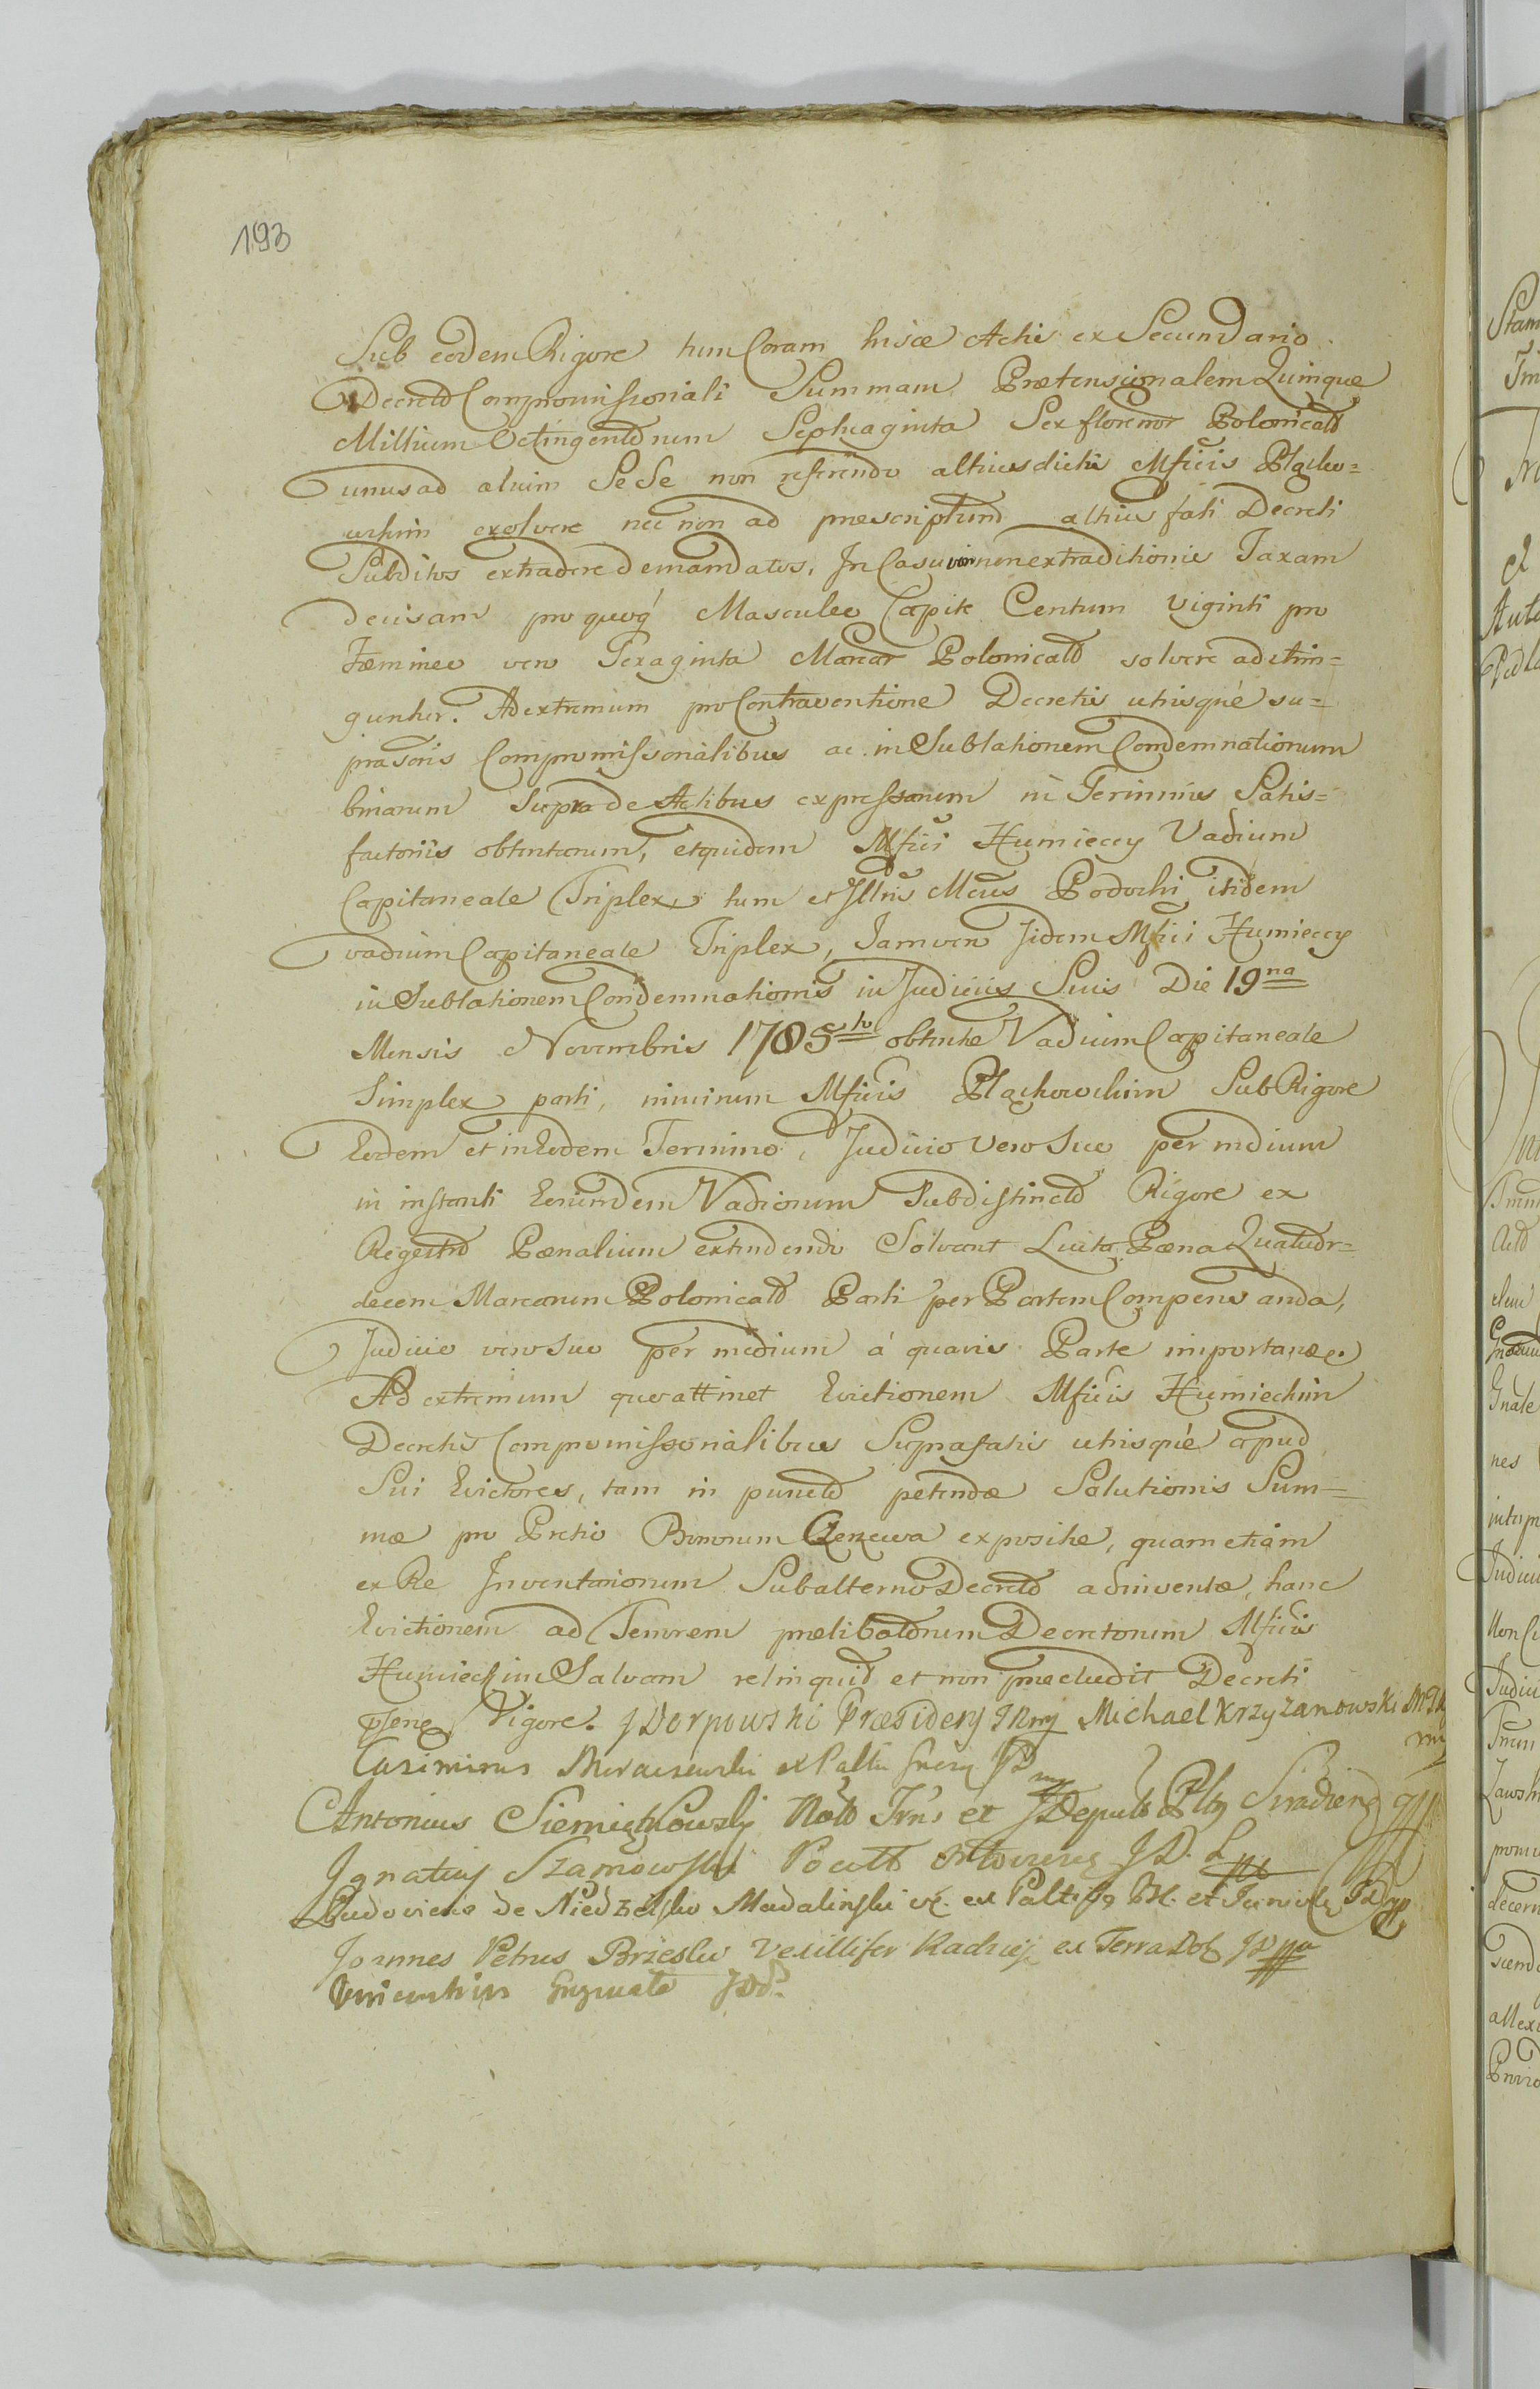 193
Sub eodem Rigore tum Coram hisce Actis ex Secundario
Decreto Compromissoriali Summam Prætensionalem Quinque
Millium Octingentorum Septuaginta Sex florenor Polonicald
unus ad alium Se Se non referendo altius dictis Mficis Plачko=
wskim exolvere nec non ad præscriptum altius fati Decreti
Subditos extradere demandatos, In Casu vero non extraditionis Taxam
decisam pro quovis Masculeo Capite Centum viginti pro
Fæmineo vero Sexaginta Marcar Polonicald solvere adstrin=
guntur. Ad extremum pro Contraventione Decretis utrisque su=
prasoris Compromissorialibus ac in Sublationem Condemnationum
binarum Supra de Actibus expressarum in Terminis Satis=
factoriis obtentarum, et quidem Mfici Humieccy Vadium
Capitaneale Triplex, tum et Illris Mcus Podoski itidem
vadium Capitaneale Triplex, Jam vero Iidem Mfici Humieccy
in Sublationem Condemnationis in Judiciis Suis Die 19na
Mensis Novembris 1785to obtentæ Vadium Capitaneale
Simplex parti, nimirum Mficis Plachowskim Sub Rigore
Eodem et in Eodem Termino, Judicio vero Suo per medium
in instanti Eorundem Vadiorum Subdistincto Rigore ex
Regestro Pænalium extendendo Solvant Luita Pæna Quatuor=
decem Marcarum Polonicald Parti per Partem Compensanda,
Judicio vero suo per medium à quavis Parte importanda.
Ad extremum quo attinet Evictionem Mficis Humieckim
Decretis Compromissorialibus Suprafatis utrisque apud
Sui Evictores, tam in puncto petendæ Solutionis Sum=
mæ pro Pretio Bonorum expositæ, quam etiam
ex Re Inventariorum Subalterno Decreto adinventæ, hanc
Evictionem ad Tenorem prælibatorum Decretorum Mficis
Humieckim Salvam relinquit et non præcludit Decreti
pſentis Vigore. J Dorpowski Præsidens Michael Krzyżanowski
Casimirus ex Paltu
Antonius Siemiątkowski Notb Trris et J Deputt Pltus Siradiens
Ignatius Szamowski Pocill J. D. L
Ludovicus de Niedzielsko Madalinski ex Paltu et Juniv
Joannes Petrus Brzeski Vexillifer Radziej ex Terra Dob J D
Vincentius Grzymała J D